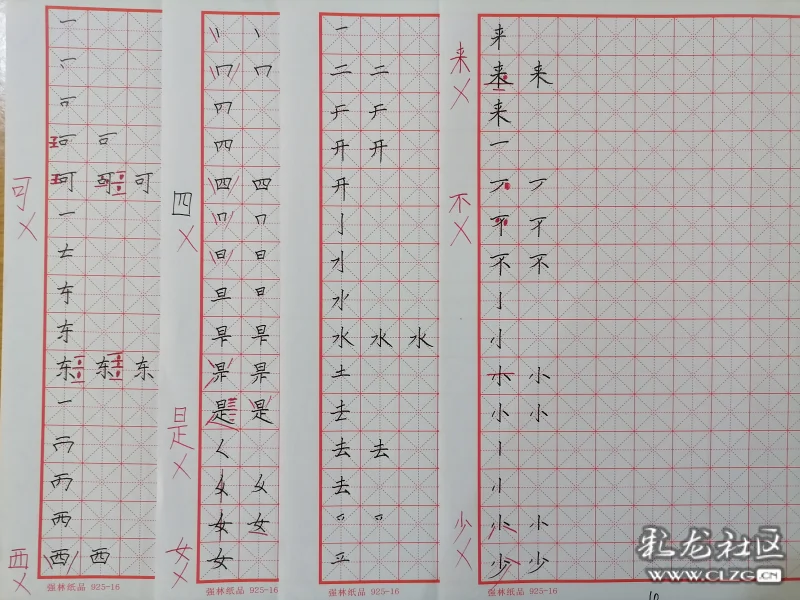 一
可
可 可
可 可 可
一
东
东
东 东 东
一
西
西 西
强林纸品 925-16
可
西
四
四 四
日
旦 日
是
是 是
女 女
女
强林纸品 925-16
四
是
女
一
二 二
开 开
开
亅
水
水 水 水
土
去 去
去
强林纸品 925-16
来
来 来
来
一
不 不
亅
小
小 小
小 小
小 小
少 少
强林纸品 925-16
来
不
少
彩龙社区
WWW.CLZG.CN